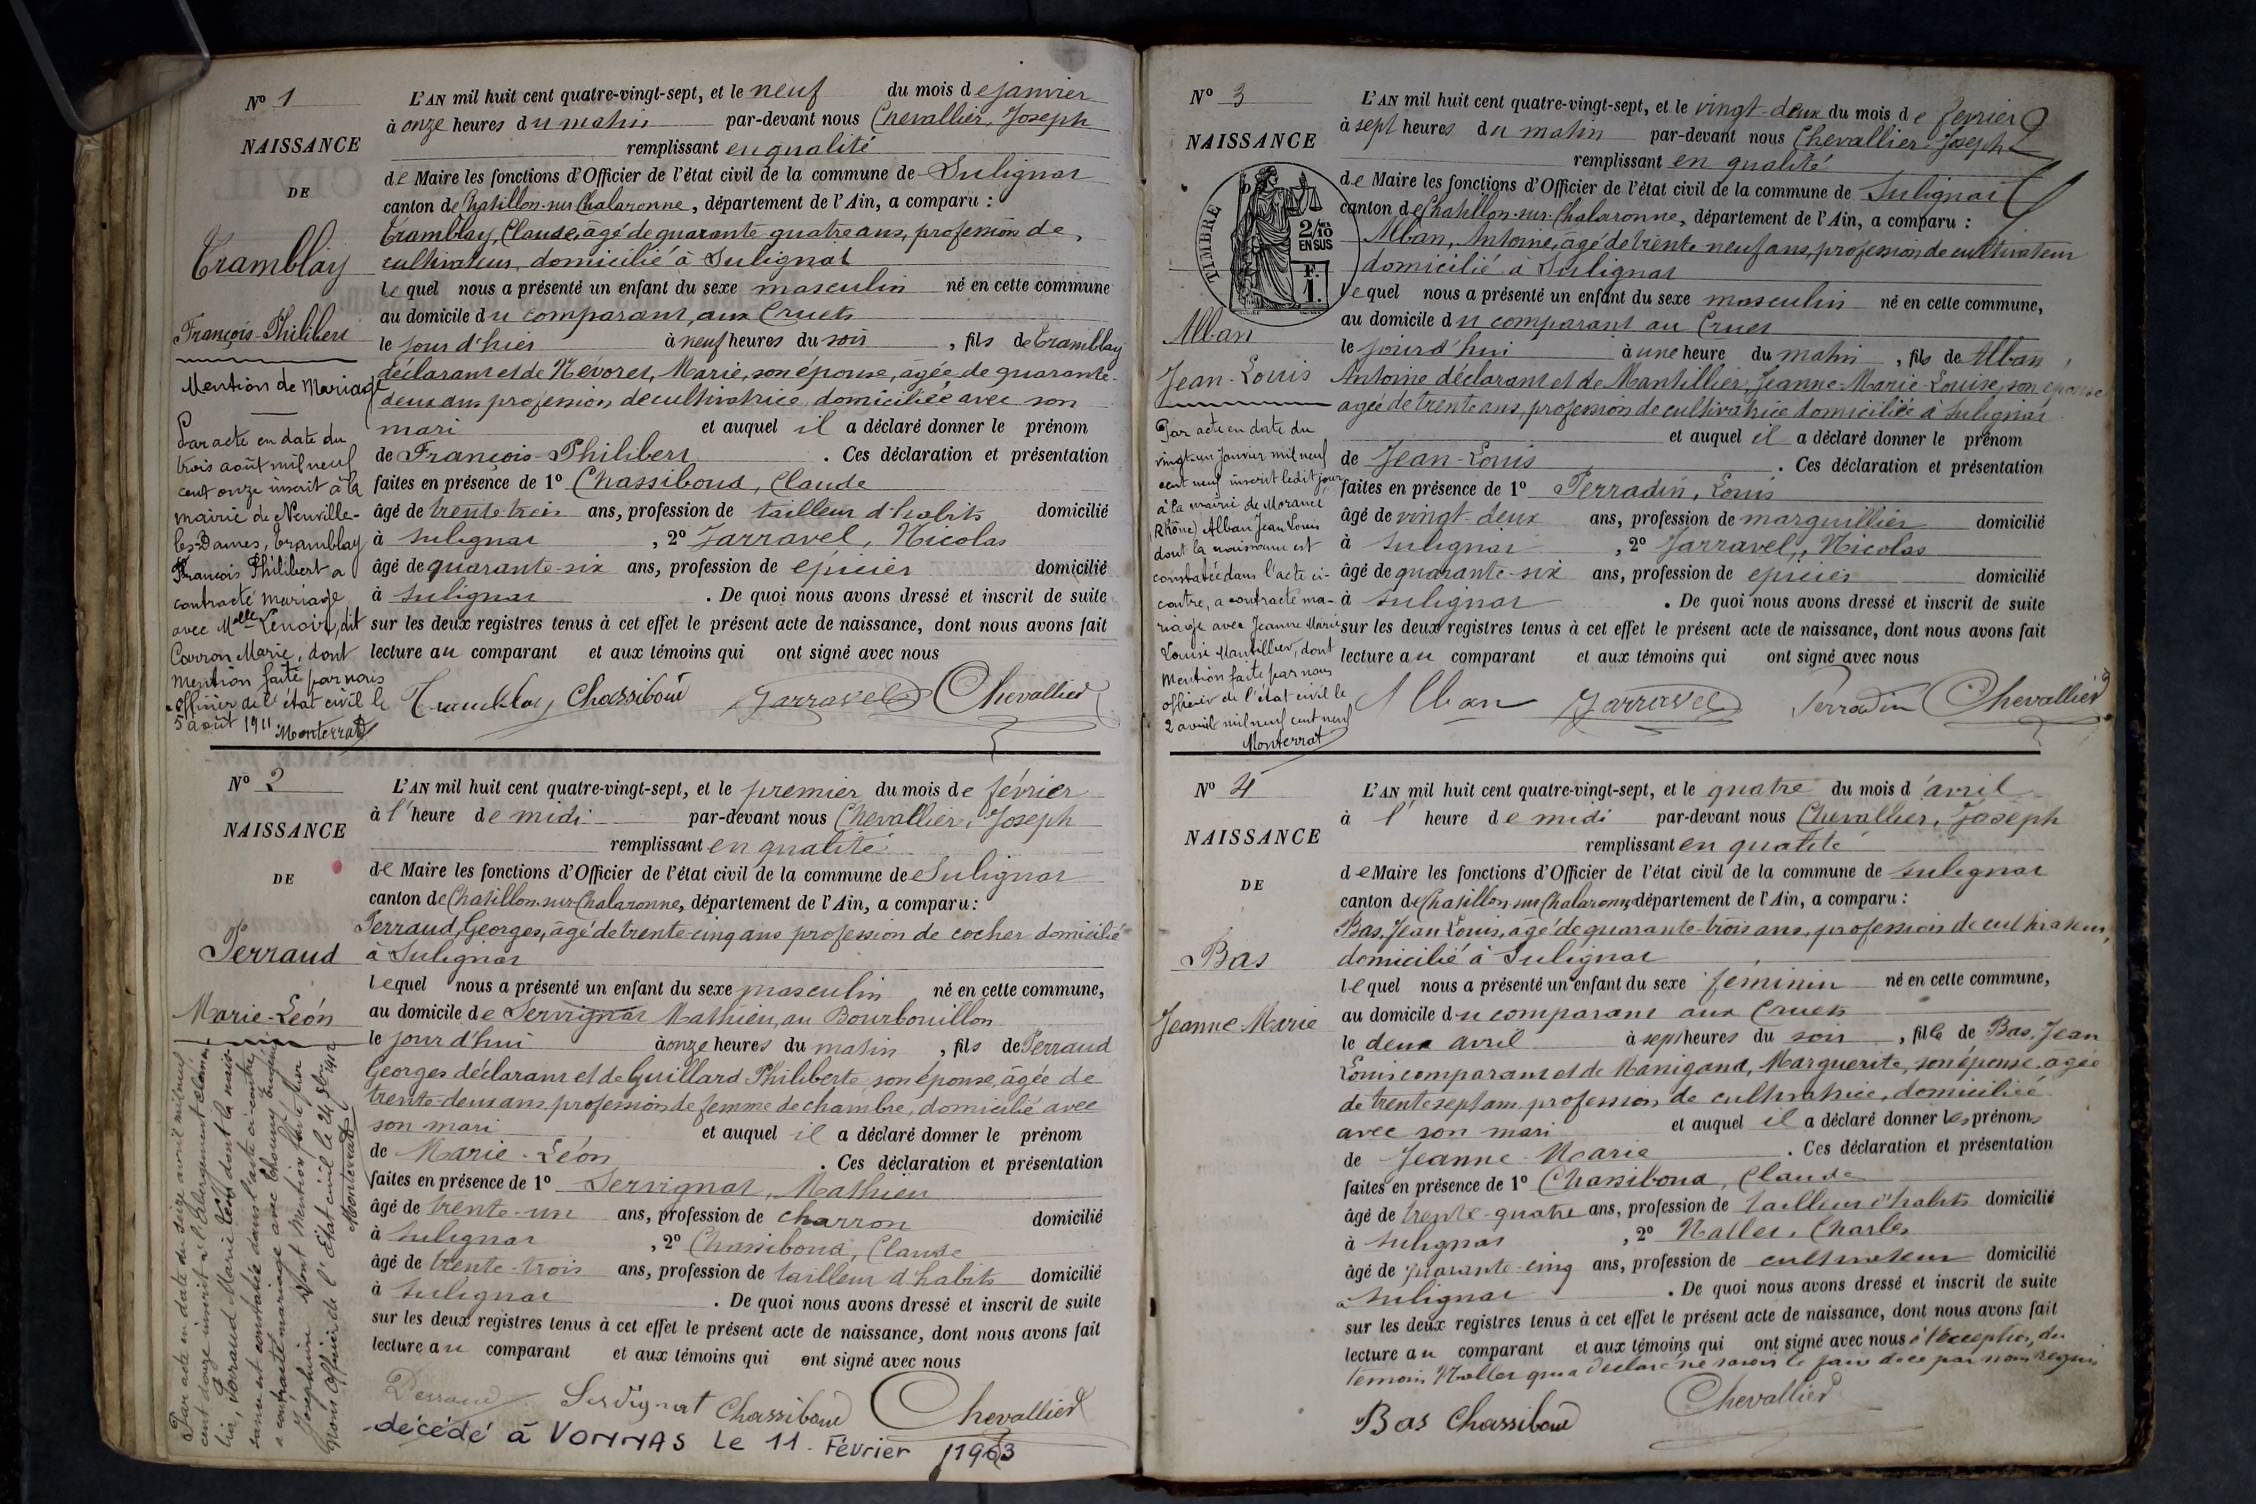 Nº 1
NAISSANCE
DE
Tramblay
François-Philibert
Mention de Mariage
Par acte en date du
trois août mil neuf
cent onze inscrit à la
mairie de Neuville-
les-Dames, Tramblay
François Philibert a
contracté mariage
avec Melle Lenoir, dit
Carron Marie, dont
mention faite par nous
officier de l'état civil le
5 août 1911. Monterrat
L'AN mil huit cent quatre-vingt-sept, et le neuf du mois de janvier
à onze heures du matin par-devant nous Chevallier, Joseph
remplissant en qualité
de Maire les fonctions d'Officier de l'état civil de la commune de Sulignat
canton de Chatillon-sur-Chalaronne, département de l'Ain, a comparu :
Tramblay, Claude, âgé de quarante quatre ans, profession de
cultivateur, domicilié à Sulignat
lequel nous a présenté un enfant du sexe masculin né en cette commune
au domicile du comparant, aux Cruets
le jour d'hier à neuf heures du soir, fils de Tramblay
déclarant et de Névoret, Marie, son épouse, âgée de quarante-
deux ans profession de cultivatrice domiciliée avec son
mari et auquel il a déclaré donner le prénom
de François-Philibert. Ces déclaration et présentation
faites en présence de 1º Chassiboud, Claude
âgé de trente trois ans, profession de tailleur d'habits domicilié
à Sulignat, 2º Jarravel, Nicolas
âgé de quarante-six ans, profession de épicier domicilié
à Sulignat. De quoi nous avons dressé et inscrit de suite
sur les deux registres tenus à cet effet le présent acte de naissance, dont nous avons fait
lecture au comparant et aux témoins qui ont signé avec nous
Tramblay Chassiboud Jarravel Chevallier
Nº 2
NAISSANCE
DE
Perraud
Marie-Léon
Par acte en date du seize avril mil neuf
cent douze inscrit à l'Abergement Clémen-
cia, Perraud Marie Léon dont la nais-
sance est constatée dans l'acte ci-contre
a contracté mariage avec
Joséphine dont mention faite par
nous officier de l'état civil le 24 1912
Monterrat
L'AN mil huit cent quatre-vingt-sept, et le premier du mois de février
à l'heure de midi par-devant nous Chevallier, Joseph
remplissant en qualité
de Maire les fonctions d'Officier de l'état civil de la commune de Sulignat
canton de Chatillon-sur-Chalaronne, département de l'Ain, a comparu :
Perraud, Georges, âgé de trente-cinq ans profession de cocher domicilié
à Sulignat
lequel nous a présenté un enfant du sexe masculin né en cette commune,
au domicile de Servignat Mathieu, au Bourbouillon
le jour d'hui à onze heures du matin, fils de Perraud
Georges déclarant et de Guillard Philiberte son épouse, âgée de
trente-deux ans profession de femme de chambre, domicilié avec
son mari et auquel il a déclaré donner le prénom
de Marie-Léon. Ces déclaration et présentation
faites en présence de 1º Servignat, Mathieu
âgé de trente-un ans, profession de charron domicilié
à Sulignat, 2º Chassiboud, Claude
âgé de trente-trois ans, profession de tailleur d'habits domicilié
à Sulignat. De quoi nous avons dressé et inscrit de suite
sur les deux registres tenus à cet effet le présent acte de naissance, dont nous avons fait
lecture au comparant et aux témoins qui ont signé avec nous
Perraud Servignat Chassiboud Chevallier
décédé à VONNAS Le 11 Février 1963
Nº 3
NAISSANCE
TIMBRE
2/10
EN SUS
F.
1.
Alban
Jean-Louis
Par acte en date du
vingt-un janvier mil neuf
cent neuf inscrit ledit jour
à la mairie de Morancé
(Rhône) Alban Jean Louis
dont la naissance est
constatée dans l'acte ci-
contre, a contracté ma-
riage avec Jeanne Marie
Louise Mantillier, dont
mention faite par nous
officier de l'état civil le
2 avril mil neuf cent neuf
Monterrat
L'AN mil huit cent quatre-vingt-sept, et le vingt-deux du mois de février
à sept heures du matin par-devant nous Chevallier, Joseph
remplissant en qualité
de Maire les fonctions d'Officier de l'état civil de la commune de Sulignat
canton de Chatillon-sur-Chalaronne, département de l'Ain, a comparu :
Alban, Antoine, âgé de trente-neuf ans, profession de cultivateur
domicilié à Sulignat
lequel nous a présenté un enfant du sexe masculin né en cette commune,
au domicile du comparant au Cruet
le jour d'hui à une heure du matin, fils de Alban
Antoine déclarant et de Mantillier, Jeanne-Marie-Louise, son épouse
agée de trente ans, profession de cultivatrice domiciliée à Sulignat
et auquel il a déclaré donner le prénom
de Jean-Louis. Ces déclaration et présentation
faites en présence de 1º Perradin, Louis
âgé de vingt-deux ans, profession de marguillier domicilié
à Sulignat, 2º Jarravel, Nicolas
âgé de quarante-six ans, profession de épicier domicilié
à Sulignat. De quoi nous avons dressé et inscrit de suite
sur les deux registres tenus à cet effet le présent acte de naissance, dont nous avons fait
lecture au comparant et aux témoins qui ont signé avec nous
Alban Jarravel Perradin Chevallier
Nº 4
NAISSANCE
DE
Bas
Jeanne Marie
L'AN mil huit cent quatre-vingt-sept, et le quatre du mois d'avril
à l'heure de midi par-devant nous Chevallier, Joseph
remplissant en qualité
de Maire les fonctions d'Officier de l'état civil de la commune de Sulignat
canton de Chatillon-sur-Chalaronne département de l'Ain, a comparu :
Bas, Jean Louis, âgé de quarante-trois ans, profession de cultivateur,
domicilié à Sulignat
lequel nous a présenté un enfant du sexe féminin né en cette commune,
au domicile du comparant aux Cruets
le deux avril à sept heures du soir, fille de Bas, Jean
Louis comparant et de Manigand, Marguerite, son épouse, agée
de trente sept ans, profession de cultivatrice, domiciliée
avec son mari et auquel il a déclaré donner les prénoms
de Jeanne-Marie. Ces déclaration et présentation
faites en présence de 1º Chassiboud, Claude
âgé de trente-quatre ans, profession de tailleur d'habits domicilié
à Sulignat, 2º Nallet, Charles
âgé de quarante-cinq ans, profession de cultivateur domicilié
à Sulignat. De quoi nous avons dressé et inscrit de suite
sur les deux registres tenus à cet effet le présent acte de naissance, dont nous avons fait
lecture au comparant et aux témoins qui ont signé avec nous à l'exception du
témoin Nallet qui a déclaré ne savoir le faire de ce par nous requis
Bas Chassiboud Chevallier